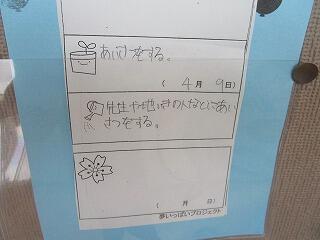 あいさつをする。
( 4月 9日)
先生や地いきの人などにあい
さつをする。
( 月 日)
夢いっぱいプロジェクト